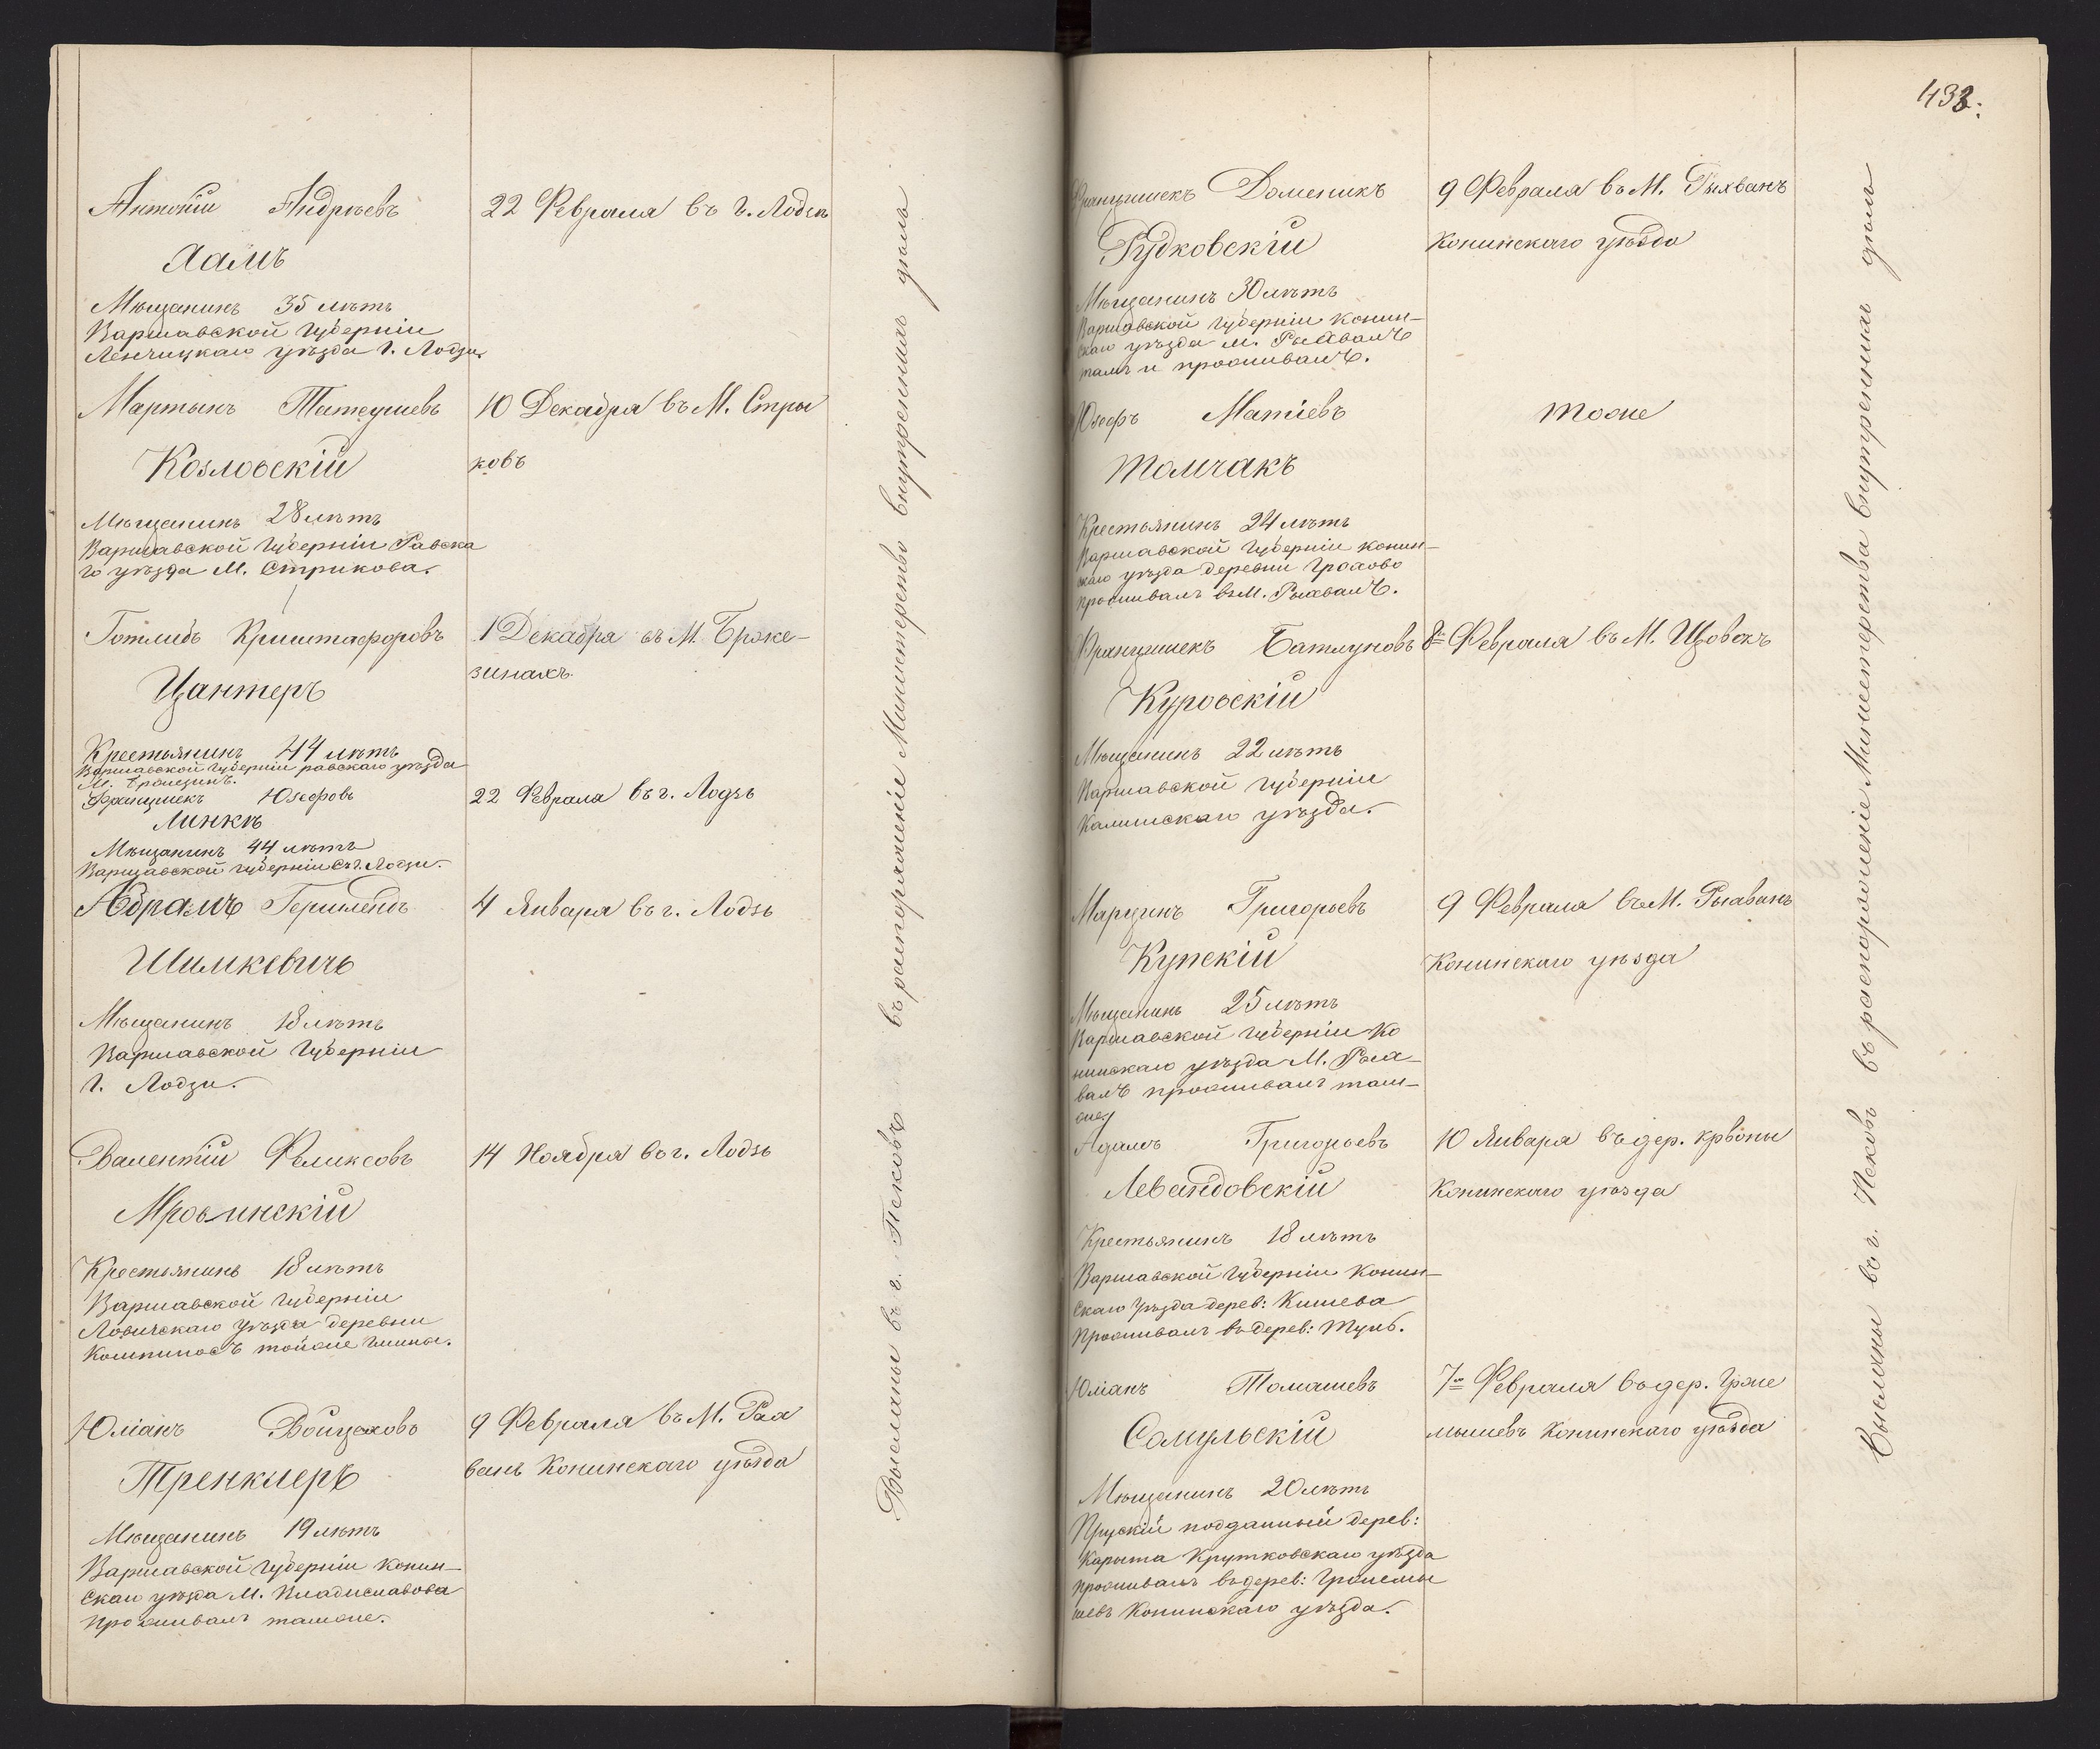 Антоній Андреевъ
22 Февраля въ г. Лодзь
Аамъ
Мѣщанинъ 35 лѣтъ
Варшавской Губерніи
Ленчицкаго уѣзда г. Лодзи.
Мартынъ Татеушевъ
10 Декабря въ М. Стры
Козловскій
ковъ
Мѣщанинъ 28 лѣтъ
Варшавской Губерніи Равска
го уѣзда М. Стрикова.
Готлибъ Криштафоровъ
1 Декабря въ М. Брже-
зинахъ.
Цантеръ
Крестьянинъ 44 лѣтъ
Варшавской Губерніи равскаго уѣзда
Францишекъ Юзефовъ
22 Февраля въ г. Лодзь
Линкѣ
Мѣщанинъ 44 лѣтъ
Варшавской губерніи г. Лодзи.
Абрамъ
4 Января въ г. Лодзь
Шимкевичъ
Мѣщанинъ 18 лѣтъ
Варшавской Губерніи
г. Лодзи.
Валентій Феликсовъ
14 Ноября въ г. Лодзь
Мровинскій
Крестьянинъ 18 лѣтъ
Варшавской Губерніи
Ловичскаго уѣзда деревни
тойже гмины.
Юліанъ Войцеховъ
9 Февраля въ М. Рых
Тренклеръ
валъ Конинскаго уѣзда
Мѣщанинъ 19 лѣтъ
Варшавской Губерніи Конин-
скаго уѣзда М. Владиславова
Проживалъ тамже.
Высланы въ г. Псковъ въ распоряженіе Министерства внутреннихъ дѣлъ
433.
Францишекъ Доменикъ
9 Февраля въ М. Рыхвалъ
Рудковскій
Конинскаго уѣзда
Мѣщанинъ 30 лѣтъ
Варшавской Губерніи Конин-
скаго уѣзда М. Рыхвалъ
тамъ и проживалъ.
Юзефъ Матіевъ
тоже
Томчакъ
Крестьянинъ 24 лѣтъ
Варшавской Губерніи Конин-
скаго уѣзда деревни Грохово
проживалъ въ М. Рыхвалъ.
Францишекъ
8го Февраля въ М.
Куровскій
Мѣщанинъ 22 лѣтъ
Варшавской Губерніи
Калишскаго уѣзда.
Марцинъ Григорьевъ
9 Февраля въ М. Рыхвалъ
Купскій
Конинскаго уѣзда
Мѣщанинъ 25 лѣтъ
Варшавской Губерніи Ко
нинскаго уѣзда М. Рых-
валъ проживалъ там-
же
Адамъ Григорьевъ
10 Января въ дер. Крвоны
Левандовскій
Конинскаго уѣзда
Крестьянинъ 18 лѣтъ
Варшавской Губерніи Конин-
скаго Уѣзда дерев: Кишева
Проживалъ въ дерев: Туль.
Юліанъ Томашевъ
7го Февраля въ дер. Грже
Сомульскій
мышевъ Конинскаго уѣзда
Мѣщанинъ 20 лѣтъ
Прускій подданный дерев:
Карыта Крутковскаго уѣзда
проживалъ въ дерев: Гржемы
шевъ Конинскаго уѣзда.
Высланы въ г. Псковъ въ распоряженіе Министерства внутреннихъ дѣлъ